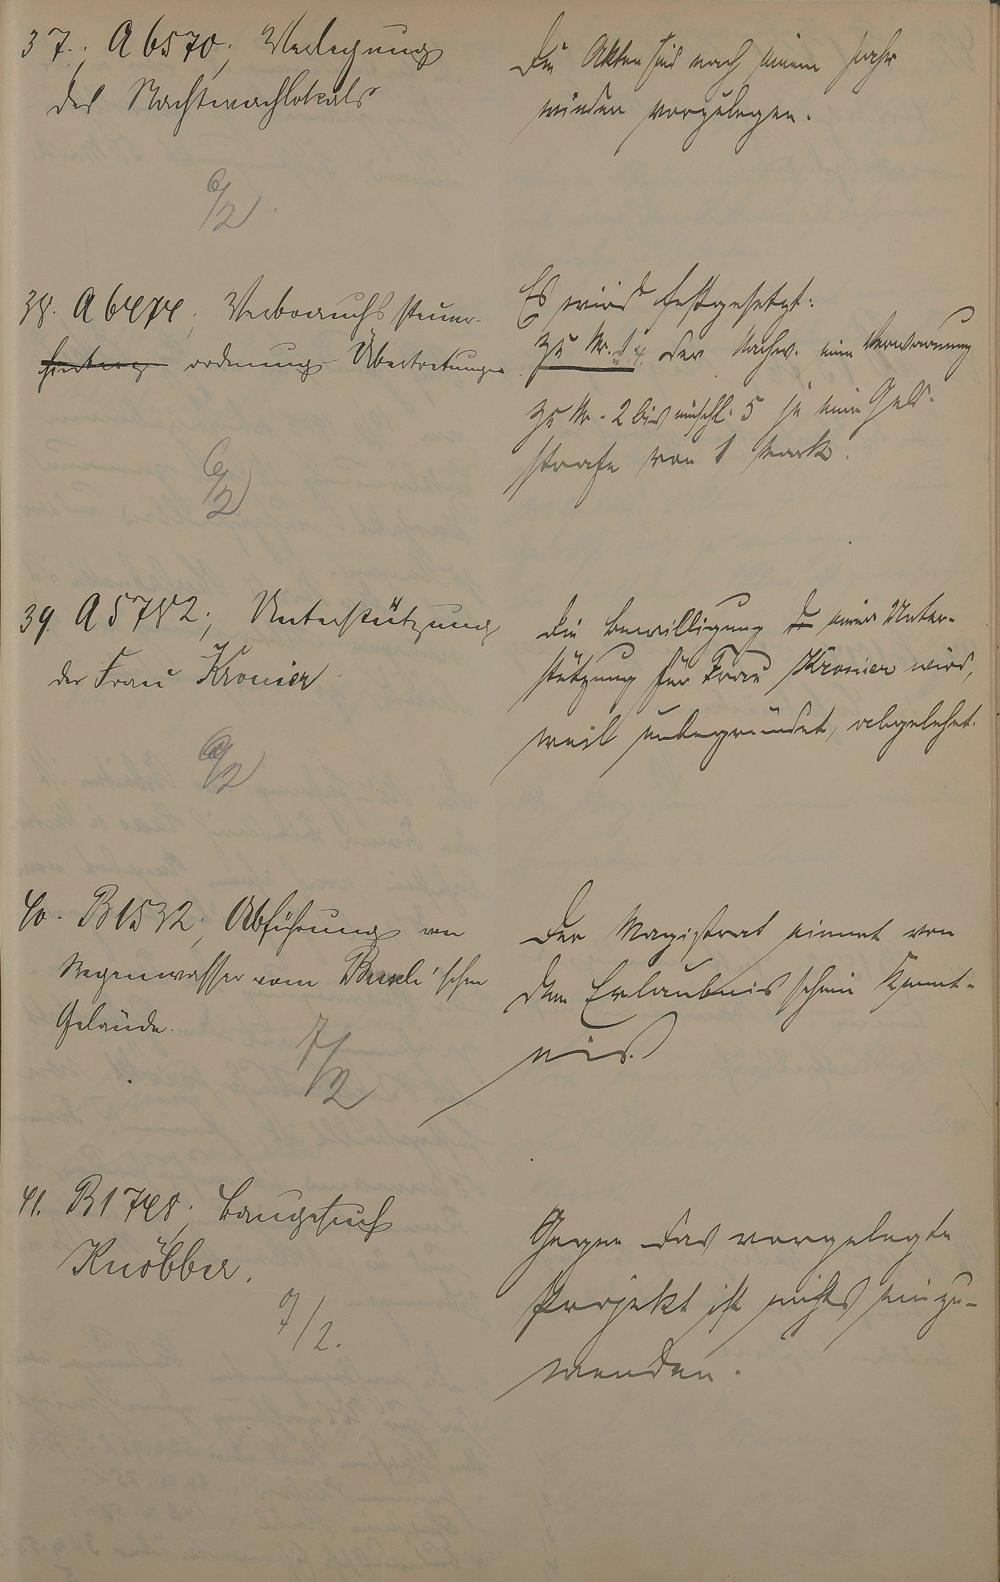 37. A 6570, Verlegung
des Nachtwachlokals
6/2
Die Akten sind nach einem Jahr
wieder vorzulegen.
38. A 6474, Verbrauchssteuer-
ordnungs Übertretungen
6/2
Es wird festgesetzt:
zu Nr. 1 der Nachw. eine Verwarnung
zu Nr. 2 bis einschl. 5 je eine Geld-
strafe von 1 Mark.
39. A 5782, Unterstützung
der Frau Kronier
6/2
Die Bewilligung einer Unter-
stützung für Frau Kronier wird,
weil unbegründet, abgelehnt.
40. B 1532, Abführung von
Regenwasser vom 'schen
Gelände.
7/2
Der Magistrat nimmt von
dem Erlaubnisschein Kennt-
nis.
41. B 1748, Baugesuch
Knöbber.
7/2.
Gegen das vorgelegte
Projekt ist nichts einzu-
wenden.